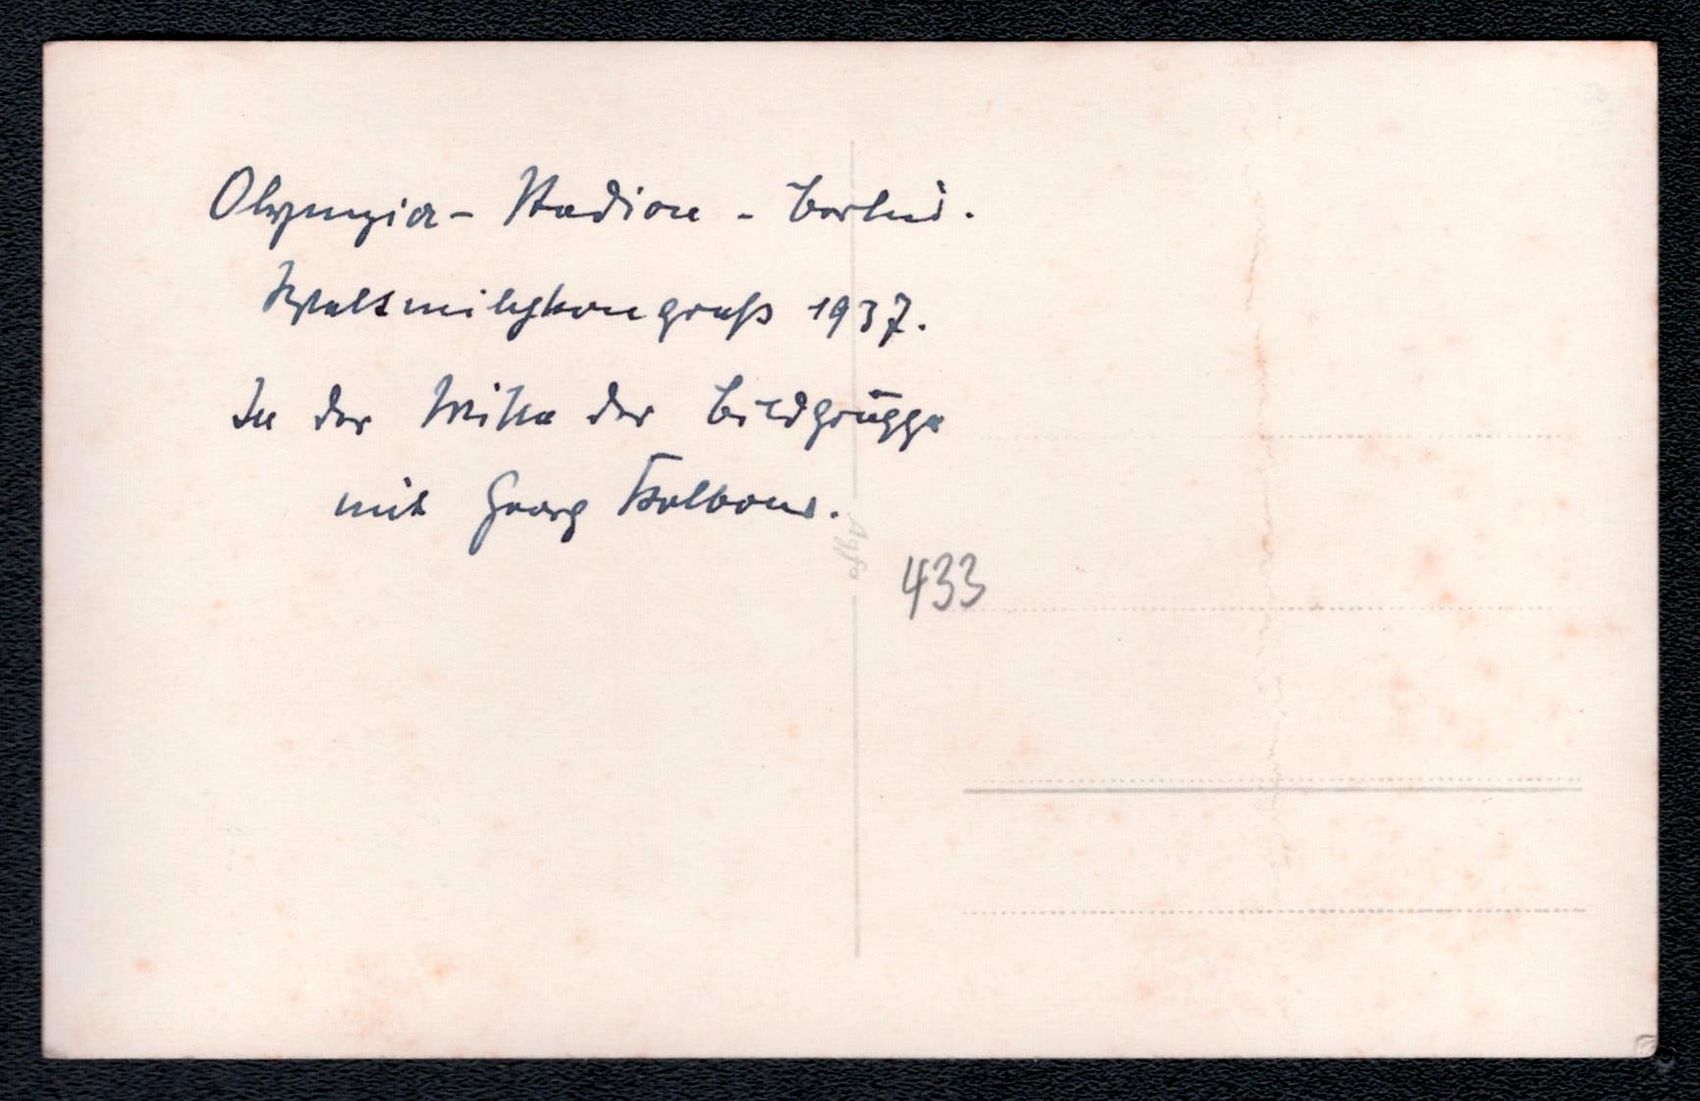 Olympia - Stadion - Berlin.
Weltmilchkongreß 1937.
In der Mitte der Bildgruppe
mit Georg
Agfa
433